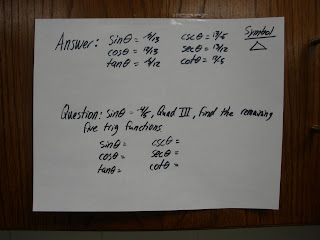 Answer: sinθ = cscθ = Symbol
cosθ = 12/13 secθ = 13/12
tanθ = cotθ =
Question: sinθ = -4/5, Quad III, Find the remaining
five trig functions
sinθ = cscθ =
cosθ = secθ =
tanθ = cotθ =